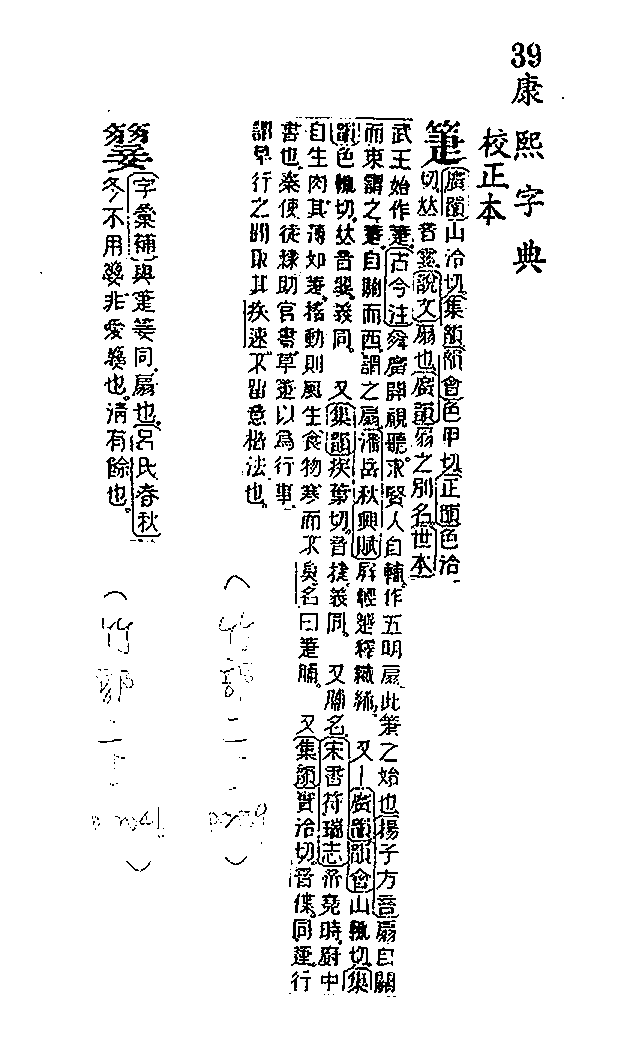 39康熙字典
校正本
箑
廣韻山洽切集韻韻會色甲切正韻色洽
切𠀤音翣說文扇也廣韻扇之別名世本
武王始作箑古今注舜廣開視聽求賢人自輔作五明扇此箑之始也揚子方言扇自關
而東謂之箑自關而西謂之扇潘岳秋興賦屏輕箑釋纖絺 又廣韻韻會山輒切集
韻色輒切𠀤音翣義同 又集韻疾葉切音捷義同 又脯名宋書符瑞志帝堯時廚中
自生肉其薄如箑搖動則風生食物寒而不臭名曰箑脯 又集韻實洽切音倢同箑行
書也秦使徒隸助官書草箑以爲行事
謂草行之間取其疾速不留意格法也
(竹部二
字彙補與箑篓同扇也呂氏春秋
冬不用翣非愛翣也清有餘也
(竹部二